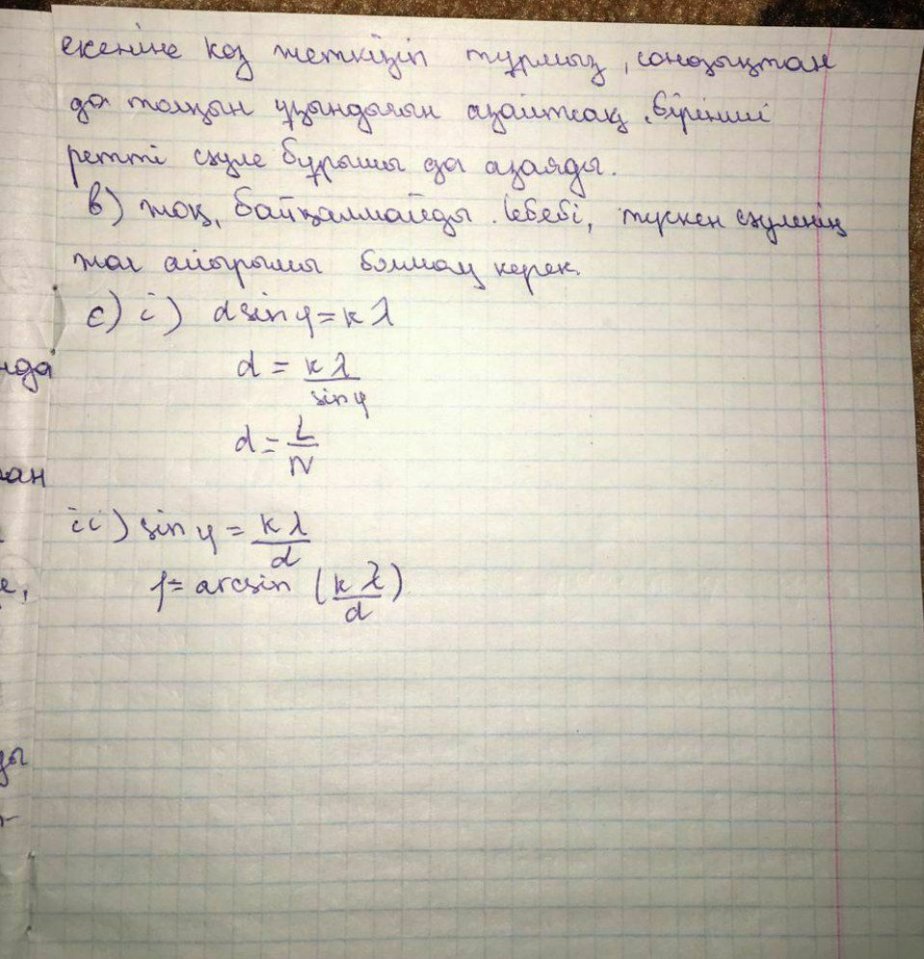 екеніне көз жеткізіп тұрмыз, сондықтан
да толқын ұзындығын азайтсақ, бірінші
ретті сәуле бұрышы да азаяды.
в) жоқ, байқалмайды. Себебі, түскен сәуленің
жол айырымы болмау керек.
c) i) d sin φ = k λ
d = kλ / sin φ
d = L / N
ii) sin φ = kλ / d
φ = arcsin (kλ / d)
нда
ан
е,
ды